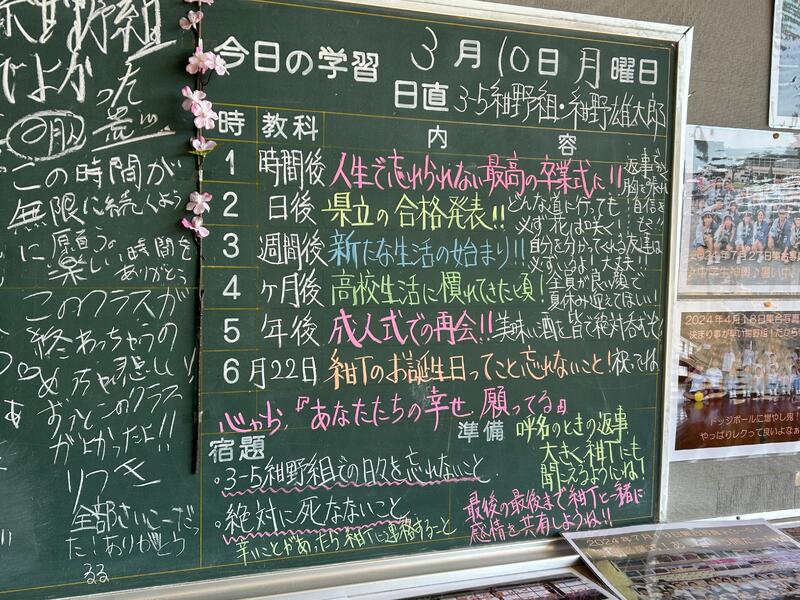 組
でよかった
この時間が
無限に続くよう
に願う。
楽しい時間を
ありがとう
このクラスが
終わっちゃうの
めっちゃ悲しい
ずっとこのクラス
がよかったよ!!
りつき
全部さいこーだっ
た!ありがとう
るる
今日の学習 3月10日月曜日
日直 3-5紺野組・紺野雄太郎
時 教科 内容
1 時間後 人生で忘れられない最高の卒業式に!!
2 日後 県立の合格発表!! どんな道に行っても 必ず花は咲く!
3 週間後 新たな生活の始まり!! 自分を分かってくれる友達は 必ずいるよ!大丈夫!!
4 ヶ月後 高校生活に慣れてきた頃! 全員が良い顔で 夏休み迎えてほしい!
5 年後 成人式での再会!! 美味い酒を皆で絶対呑むぞ!
6 月22日 紺Tのお誕生日ってこと忘れないこと! 祝ってね
心から、『あなたたちの幸せ 願ってる』
宿題
・3-5紺野組での日々を忘れないこと
・絶対に死なないこと
辛いことがあったら紺Tに連絡すること
準備
呼名のときの返事
大きく紺Tにも
聞こえるようにね!
最後の最後まで紺Tと一緒に
感情を共有しようね!!
2024年4月18日集合写真
ドッジボールに増やし鬼!
やっぱりレクって良いよなぁ